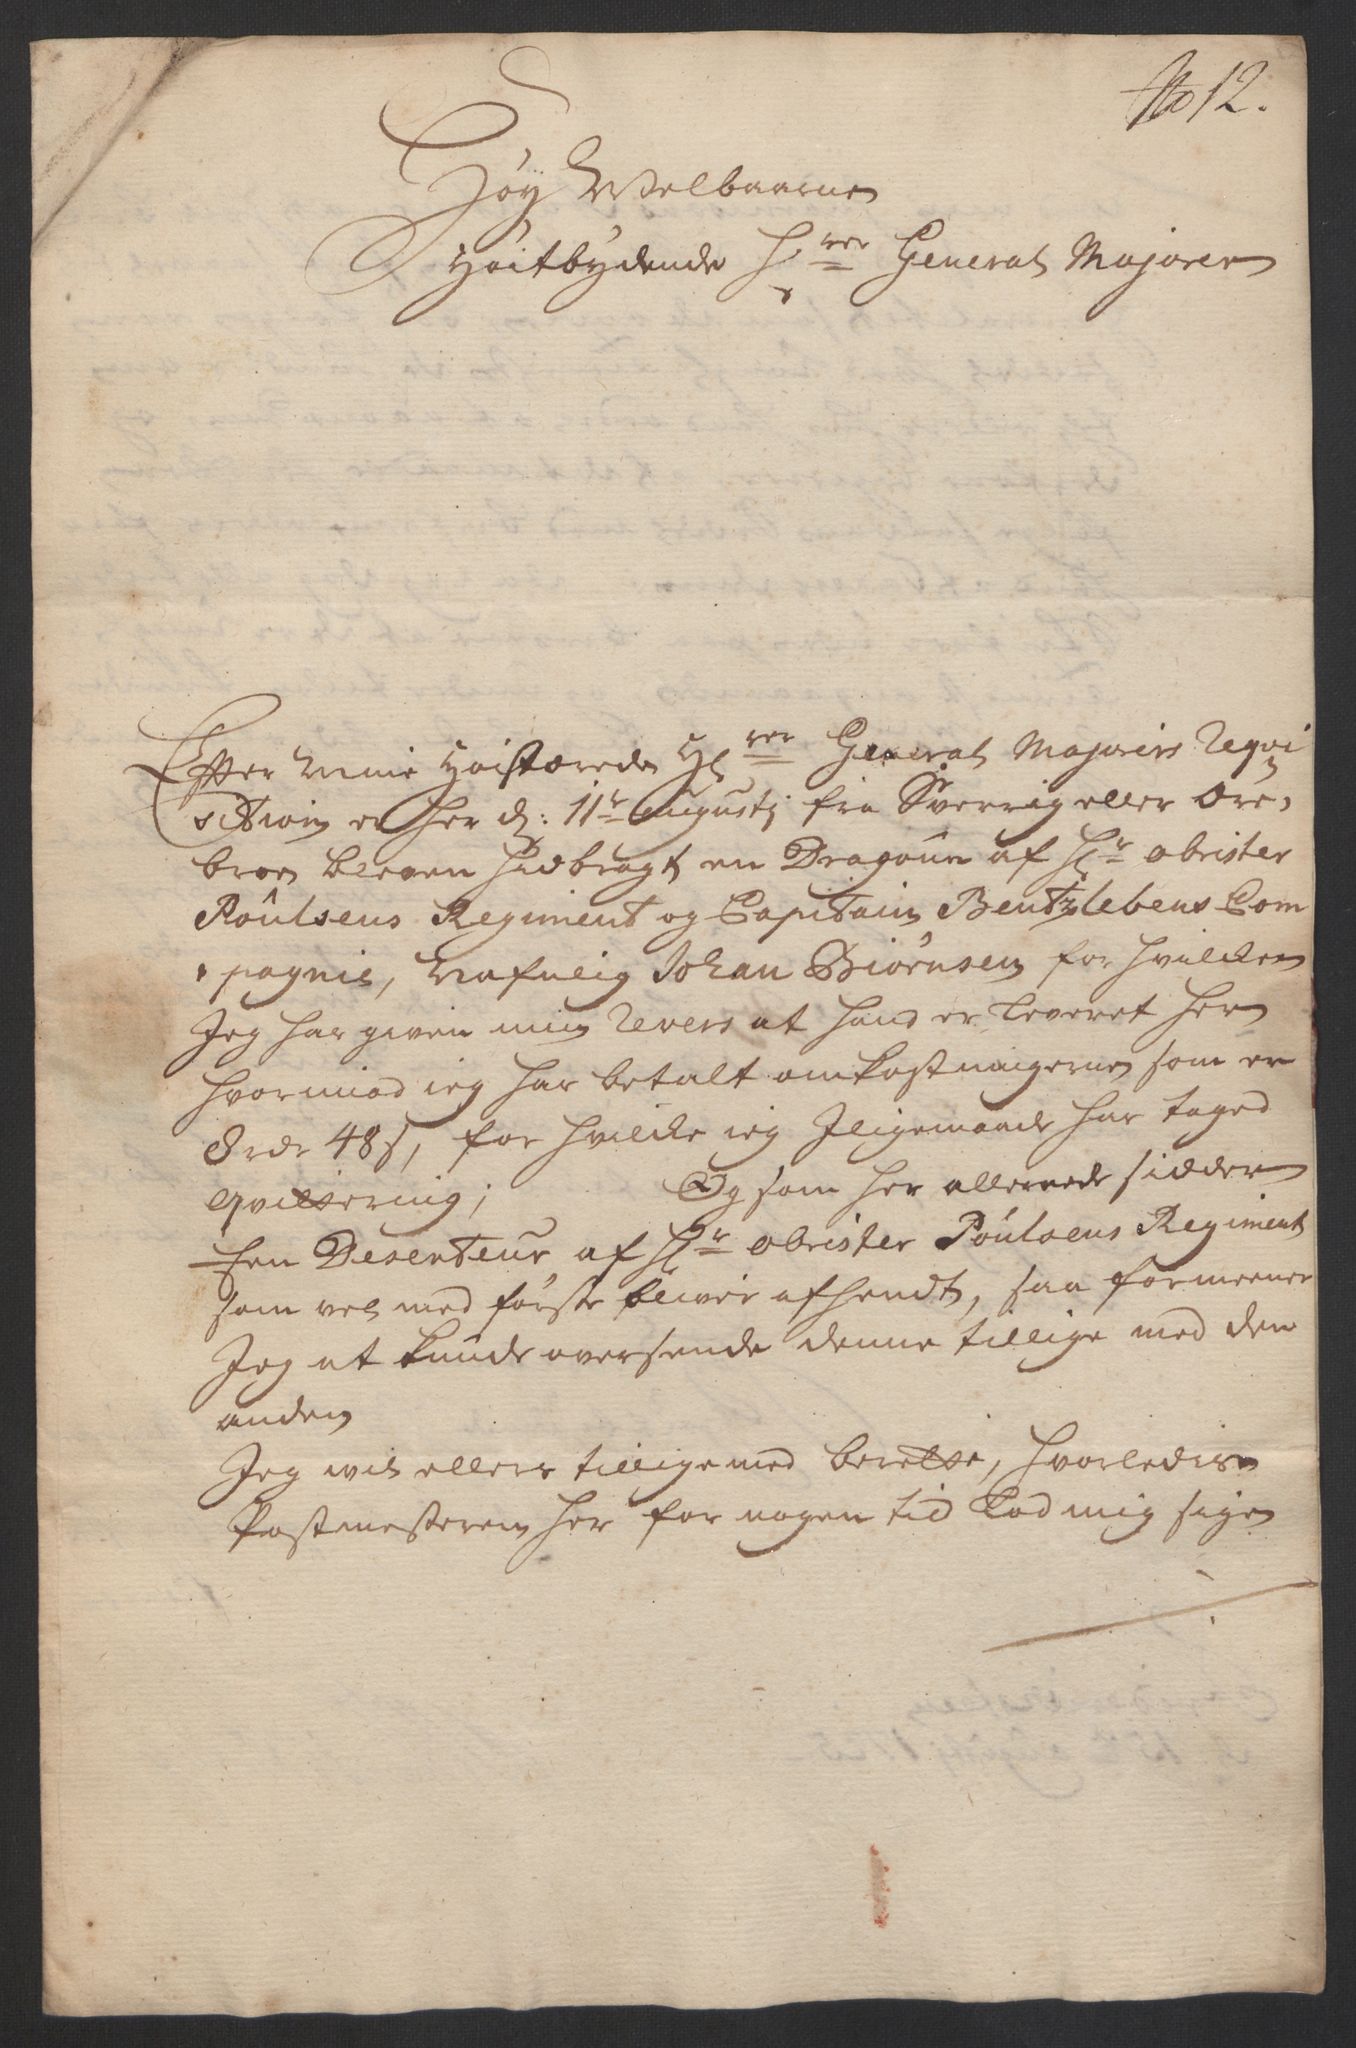 No 12.
Høy Welbaarne
Høitbydende Hr General Majoren
Efter Min Høistærede Hr General Majoris Reqvi
sition er her d: 11te Augustj fra Sverrig eller Øre,
broe bleven hidbragt en Dragoun af Hr Obrister
Poulsens Regiment og Capitain Bentzlebens Com
pagnie, Nafnlig Johan Biørnsen for hvilken
Jeg har given min Revers at hand er leveret her
hvormed ieg har betalt omkostningerne som er
8 rdr 48 s, for hvilke ieg Iligemaade har taged
qvittering; Og som her allerede sidder
Een Deserteur af Hr Obrister Poulsens Regiment
som vel med første bliver afhendt, saa formeener
Jeg at kunde oversende denne tillige med den
anden
Jeg vil ellers tillige med berette, hvorledis
Postmesteren her for nogen tid lod mig sige